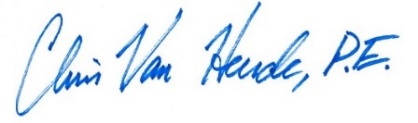 Chris Van Hende, P.E.